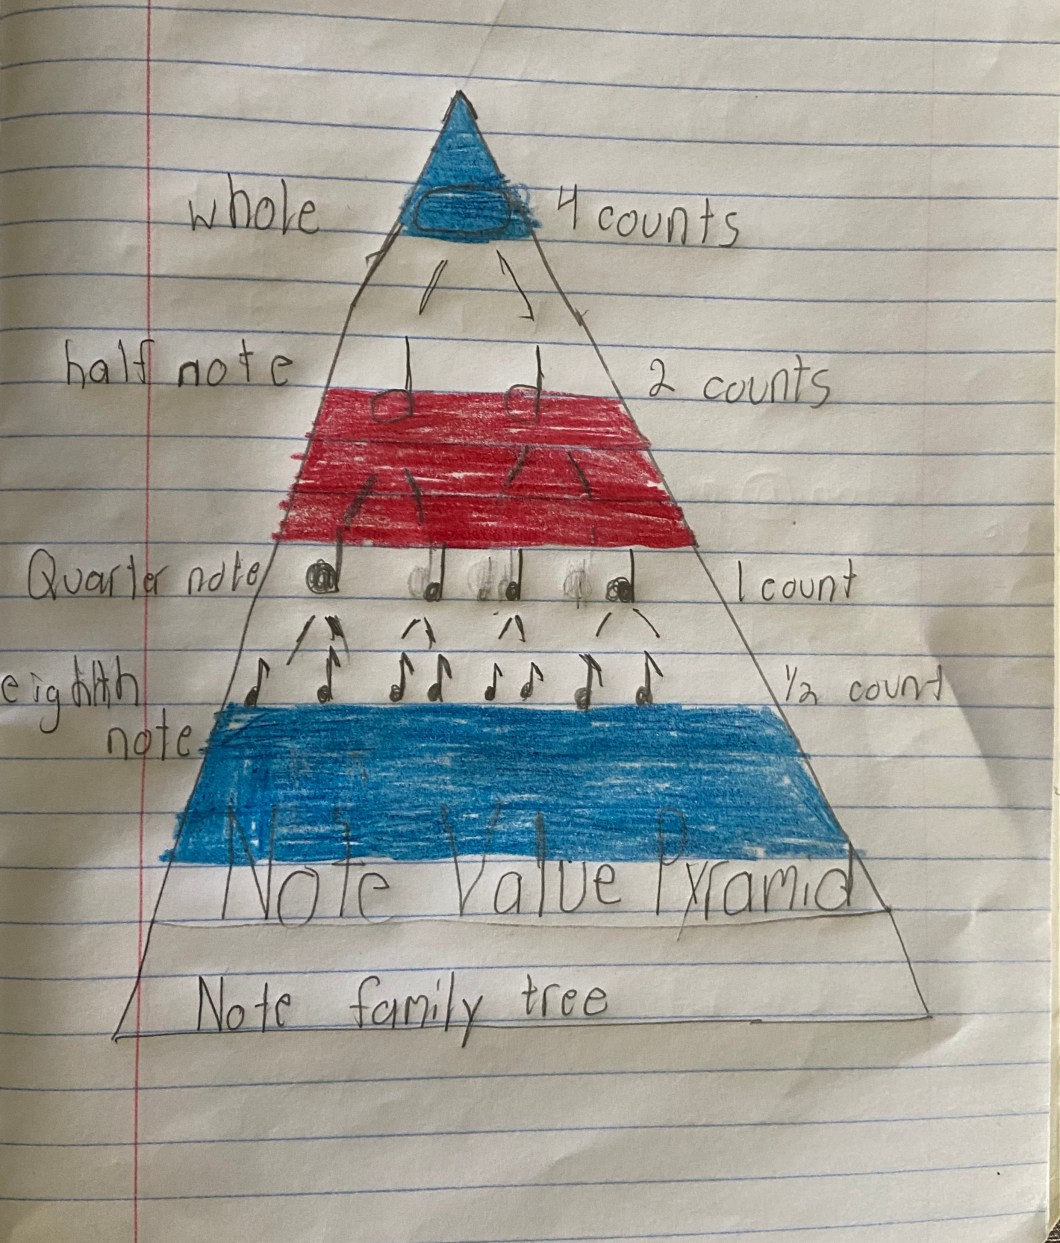 whole 4 counts
half note 2 counts
Quarter note 1 count
eighth 1/2 count
note
Note Value Pyramid
Note family tree